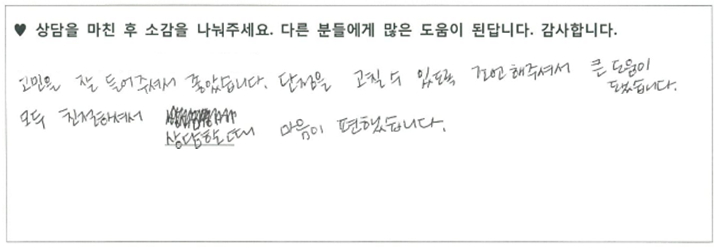 ♥ 상담을 마친 후 소감을 나눠주세요. 다른 분들에게 많은 도움이 된답니다. 감사합니다.
고민을 잘 들어주셔서 좋았습니다. 단점을 고칠 수 있도록 조언해주셔서 큰 도움이
되었습니다.
모두 친절하셔서
상담하는데 마음이 편했습니다.